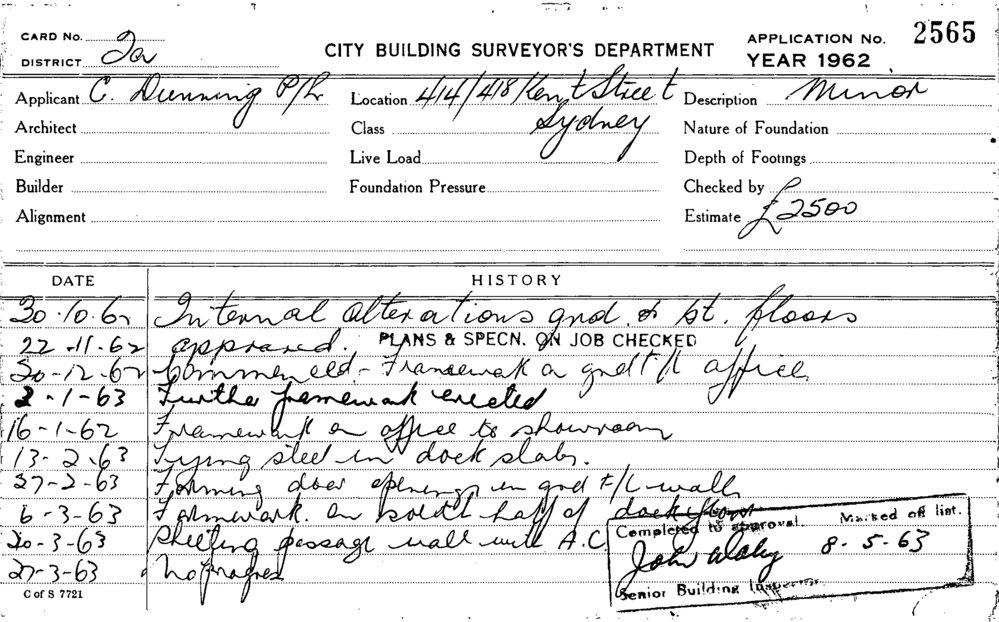 CARD No.
DISTRICT 2a
CITY BUILDING SURVEYOR'S DEPARTMENT
APPLICATION No. 2565
YEAR 1962
Applicant C. Dunning P/L
Location 414/418 Kent Street
Sydney
Description Minor
Architect
Class
Nature of Foundation
Engineer
Live Load
Depth of Footings
Builder
Foundation Pressure
Checked by
Alignment
Estimate £2500
DATE HISTORY
30.10.62 Internal alterations gnd. & 1st. floors
22-11-62 approved. PLANS & SPECN. ON JOB CHECKED
20-12-62 Commenced - Framework on gnd f/l office
2-1-63 Further framework erected
16-1-62 Framework on office to showroom
13-2-63 Tying steel in dock slabs.
27-2-63 Forming door openings in gnd F/L wall
6-3-63 Formwork on south half of dock floor
20-3-63 Sheeting passage wall with A.C.
27-3-63 No progress
Completed to approval. Marked off list.
John 8-5-63
Senior Building Inspector
C of S 7721